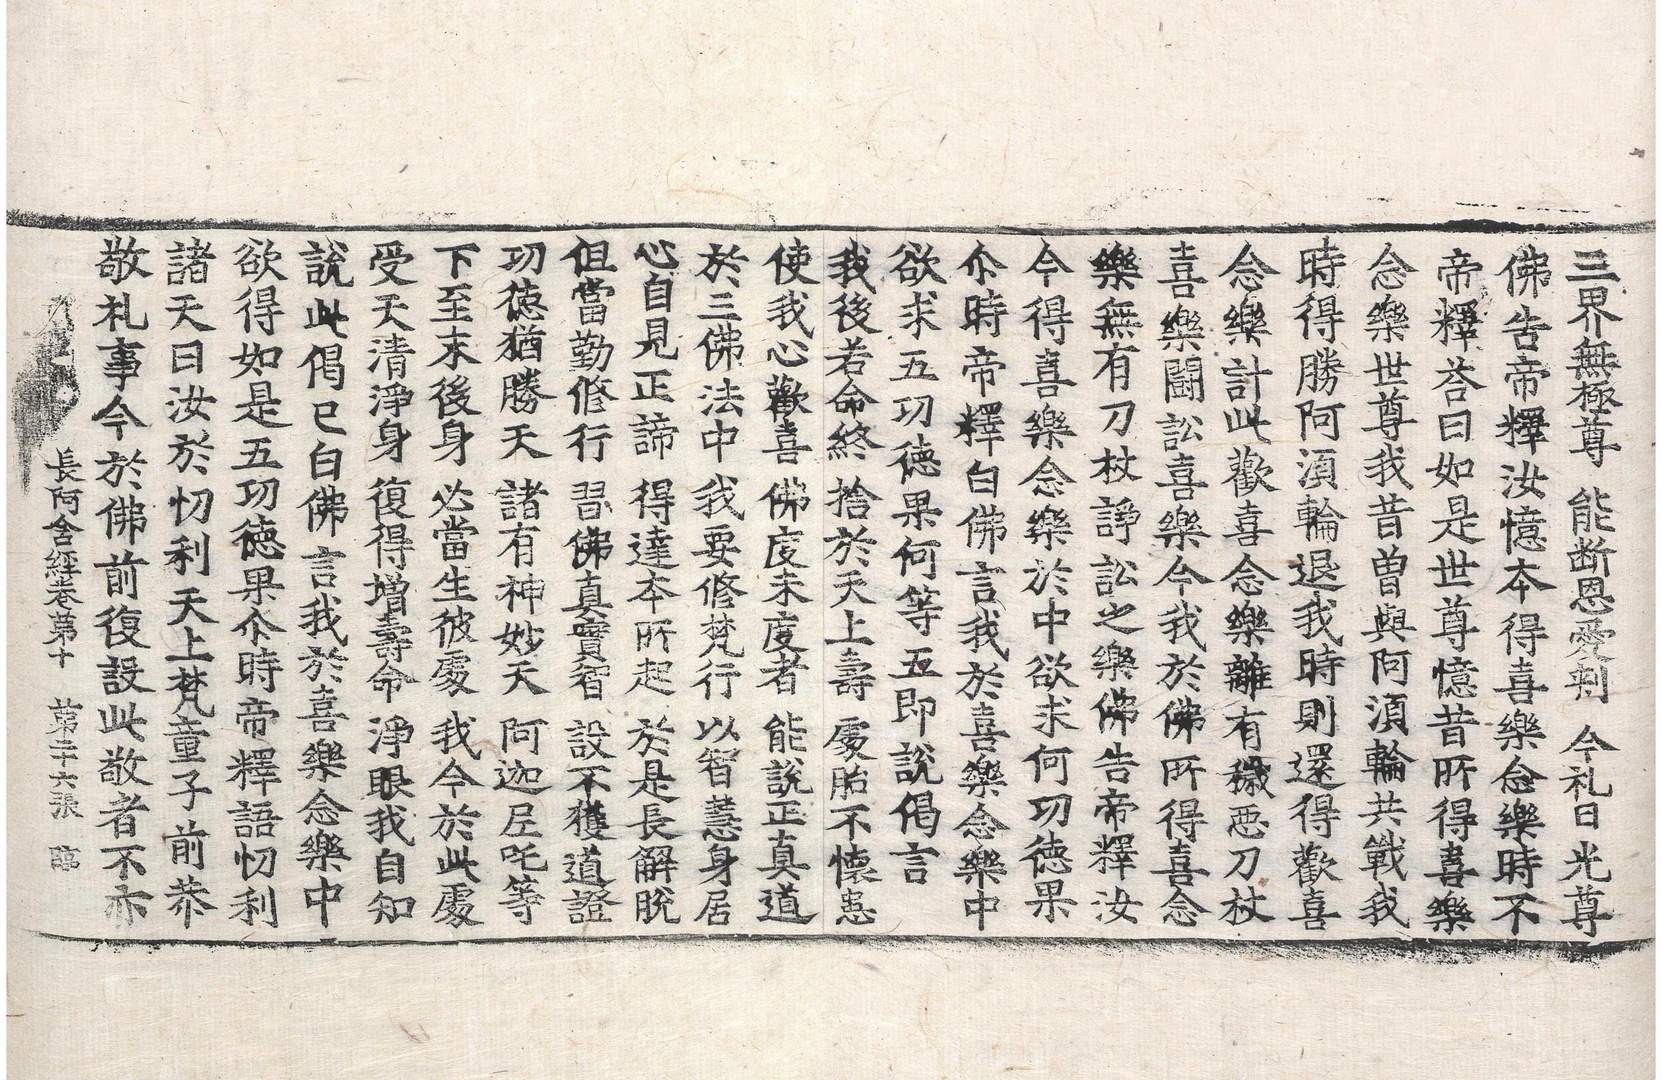 三界無極尊　能断恩愛刺　今礼日光尊
佛告帝釋汝憶本得喜樂念樂時不
帝釋荅曰如是世尊憶昔所得喜樂
念樂世尊我昔曾與阿湏輪共戰我
時得勝阿湏輪退我時則還得歡喜
念樂計此歡喜念樂離有穢惡刀杖
喜樂鬪訟喜樂今我於佛所得喜念
樂無有刀杖諍訟之樂佛告帝釋汝
今得喜樂念樂於中欲求何功徳果
尒時帝釋白佛言我於喜樂念樂中
欲求五功徳果何等五即說偈言
我後若命終　捨於天上壽　處胎不懷患
使我心歡喜　佛度未度者　能說正真道
於三佛法中　我要修梵行　以智慧身居
心自見正諦　得達本所起　於是長解脫
但當勤修行　習佛真實智　設不獲道證
功徳猶勝天　諸有神妙天　阿迦𡰱吒等
下至末後身　必當生彼處　我今於此處
受天清淨身　復得增壽命　淨眼我自知
說此偈已白佛言我於喜樂念樂中
欲得如是五功徳果尒時帝釋語忉利
諸天曰汝於忉利天上梵童子前恭
敬礼事今於佛前復設此敬者不亦
長阿含經卷第十　第二十六張　臨